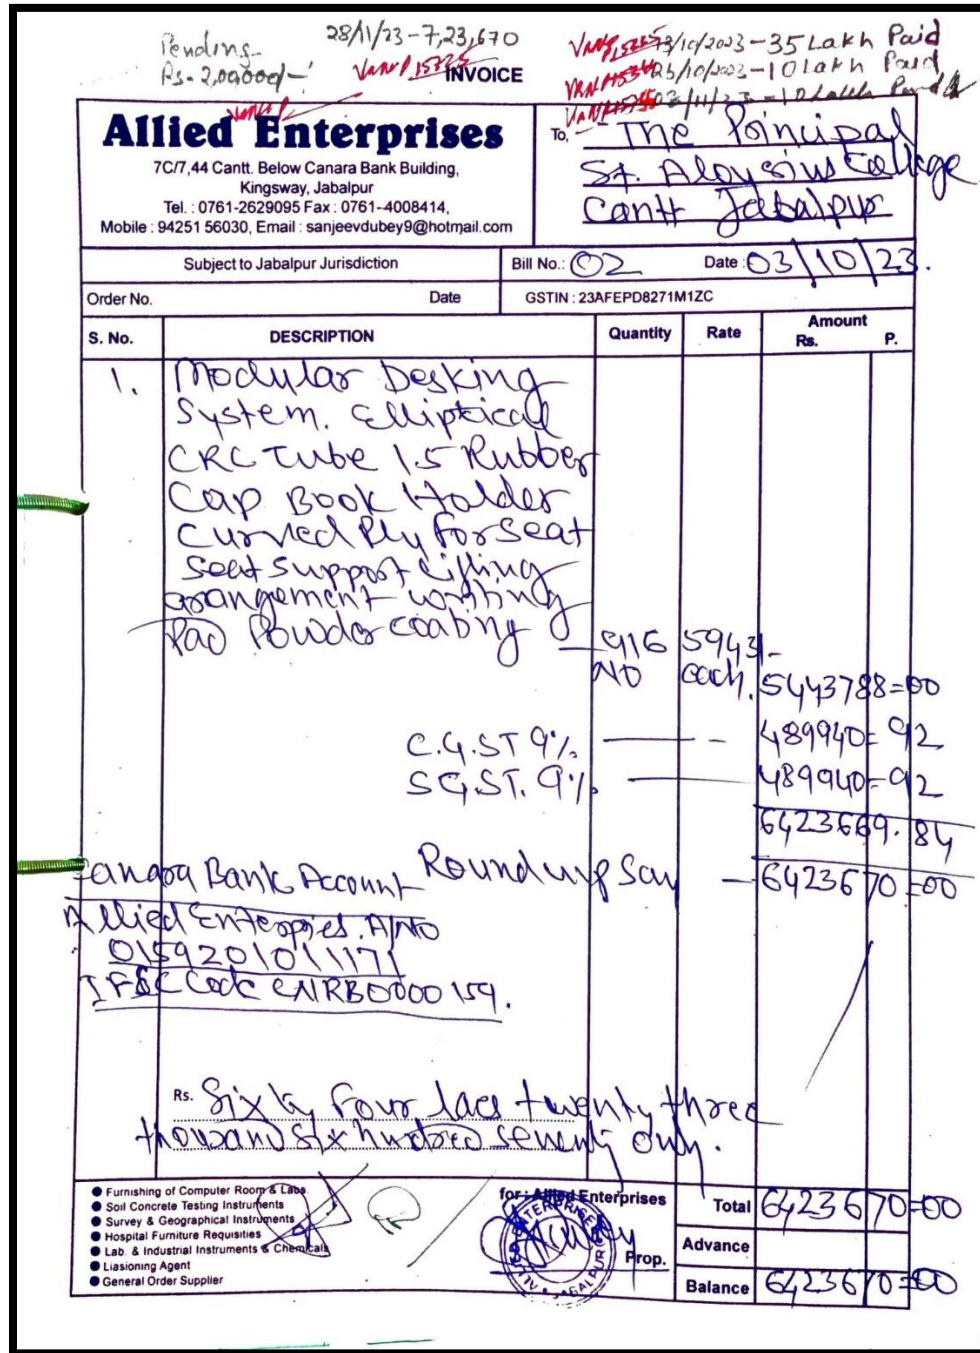 Pending
Rs- 2,00,000/-
28/11/23-7,23,670
13/10/2023-35 Lakh Paid
25/10/2023-10 Lakh Paid
INVOICE
Allied Enterprises
7C/7,44 Cantt. Below Canara Bank Building,
Kingsway, Jabalpur
Tel. : 0761-2629095 Fax : 0761--4008414,
Mobile : 94251 56030, Email : sanjeevdubey9@hotmail.com
To, The Principal
St. Aloysius College
Cantt Jabalpur
Subject to Jabalpur Jurisdiction
Bill No.: 02 Date : 03/10/23.
Order No. Date
GSTIN : 23AFEPD8271M1ZC
S. No. DESCRIPTION Quantity Rate Amount
Rs. P.
1. Modular Desking
System. Elliptical
CRC Tube 1.5 Rubber
Cap Book Holder
Curved Ply for Seat
Seat Support Lifting
arangement writing
Pad Powder coating 916 5943/-
NO each. 5443788=00
C.G.ST 9%. - 489940=92
SG.ST. 9% 489940=92
6423669.84
Rounding Say - 6423670=00
Canara Bank Account
Allied Enterpries. A/NO
0159201011171
IFSC Code CNRB0000159.
Rs. Sixty four lacs twenty three
thousand six hundred seventy only.
Furnishing of Computer Room & Labs
Soil Concrete Testing Instruments
Survey & Geographical Instruments
Hospital Furniture Requisities
Lab. & Industrial Instruments & Chemicals
Liasioning Agent
General Order Supplier
for : Allied Enterprises
Prop.
ALLIED ENTERPRISES
JABALPUR
Total 6423670=00
Advance
Balance 6423670=00